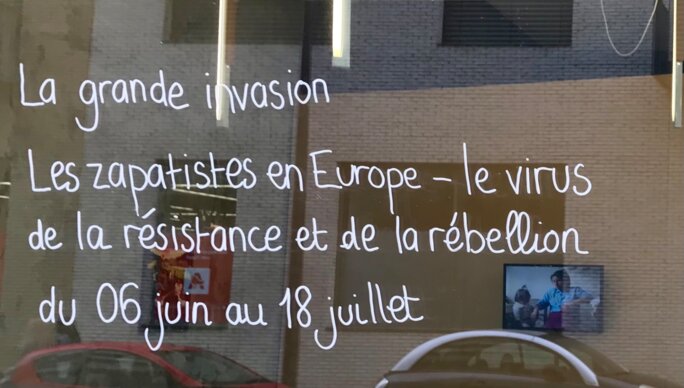 La grande invasion
Les zapatistes en Europe – le virus
de la résistance et de la rébellion
du 06 juin au 18 juillet